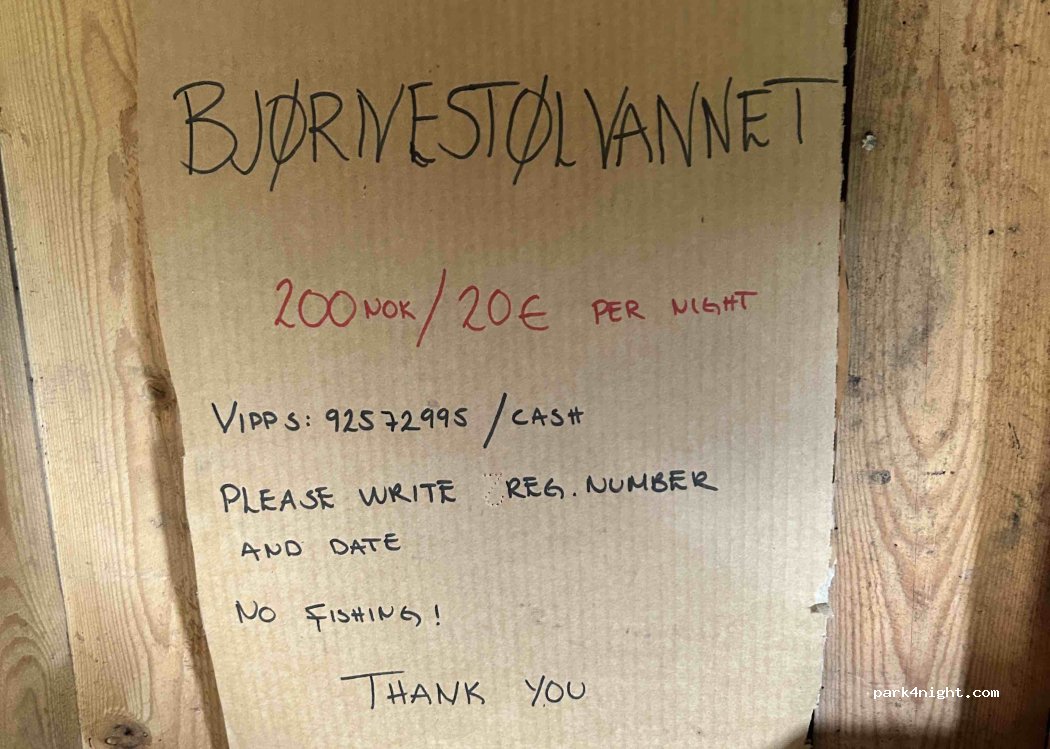 BJØRNESTØLVANNET
200 NOK / 20€ PER NIGHT
VIPPS: 92572995 / CASH
PLEASE WRITE REG. NUMBER
AND DATE
NO FISHING!
THANK YOU
park4night.com